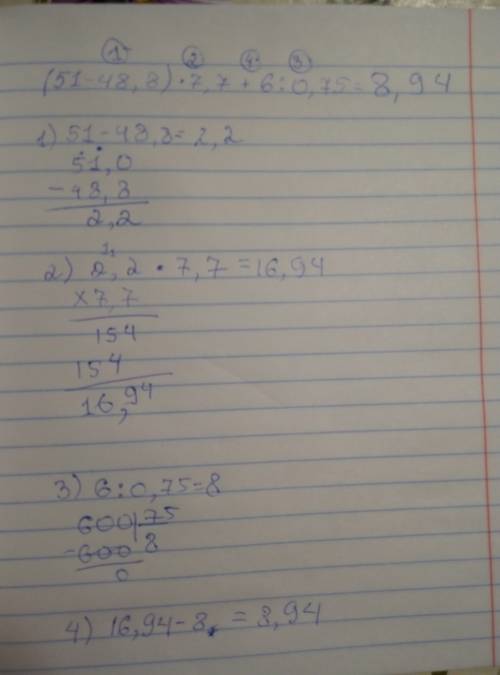 1 2 4 3
(51-48,8)·7,7+6:0,75=8,94
1) 51-48,8=2,2
51,0
-48,8
2,2
1
2) 2,2·7,7=16,94
×7,7
154
154
16,94
3) 6:0,75=8
600|75
-600 8
0
4) 16,94-8,=8,94